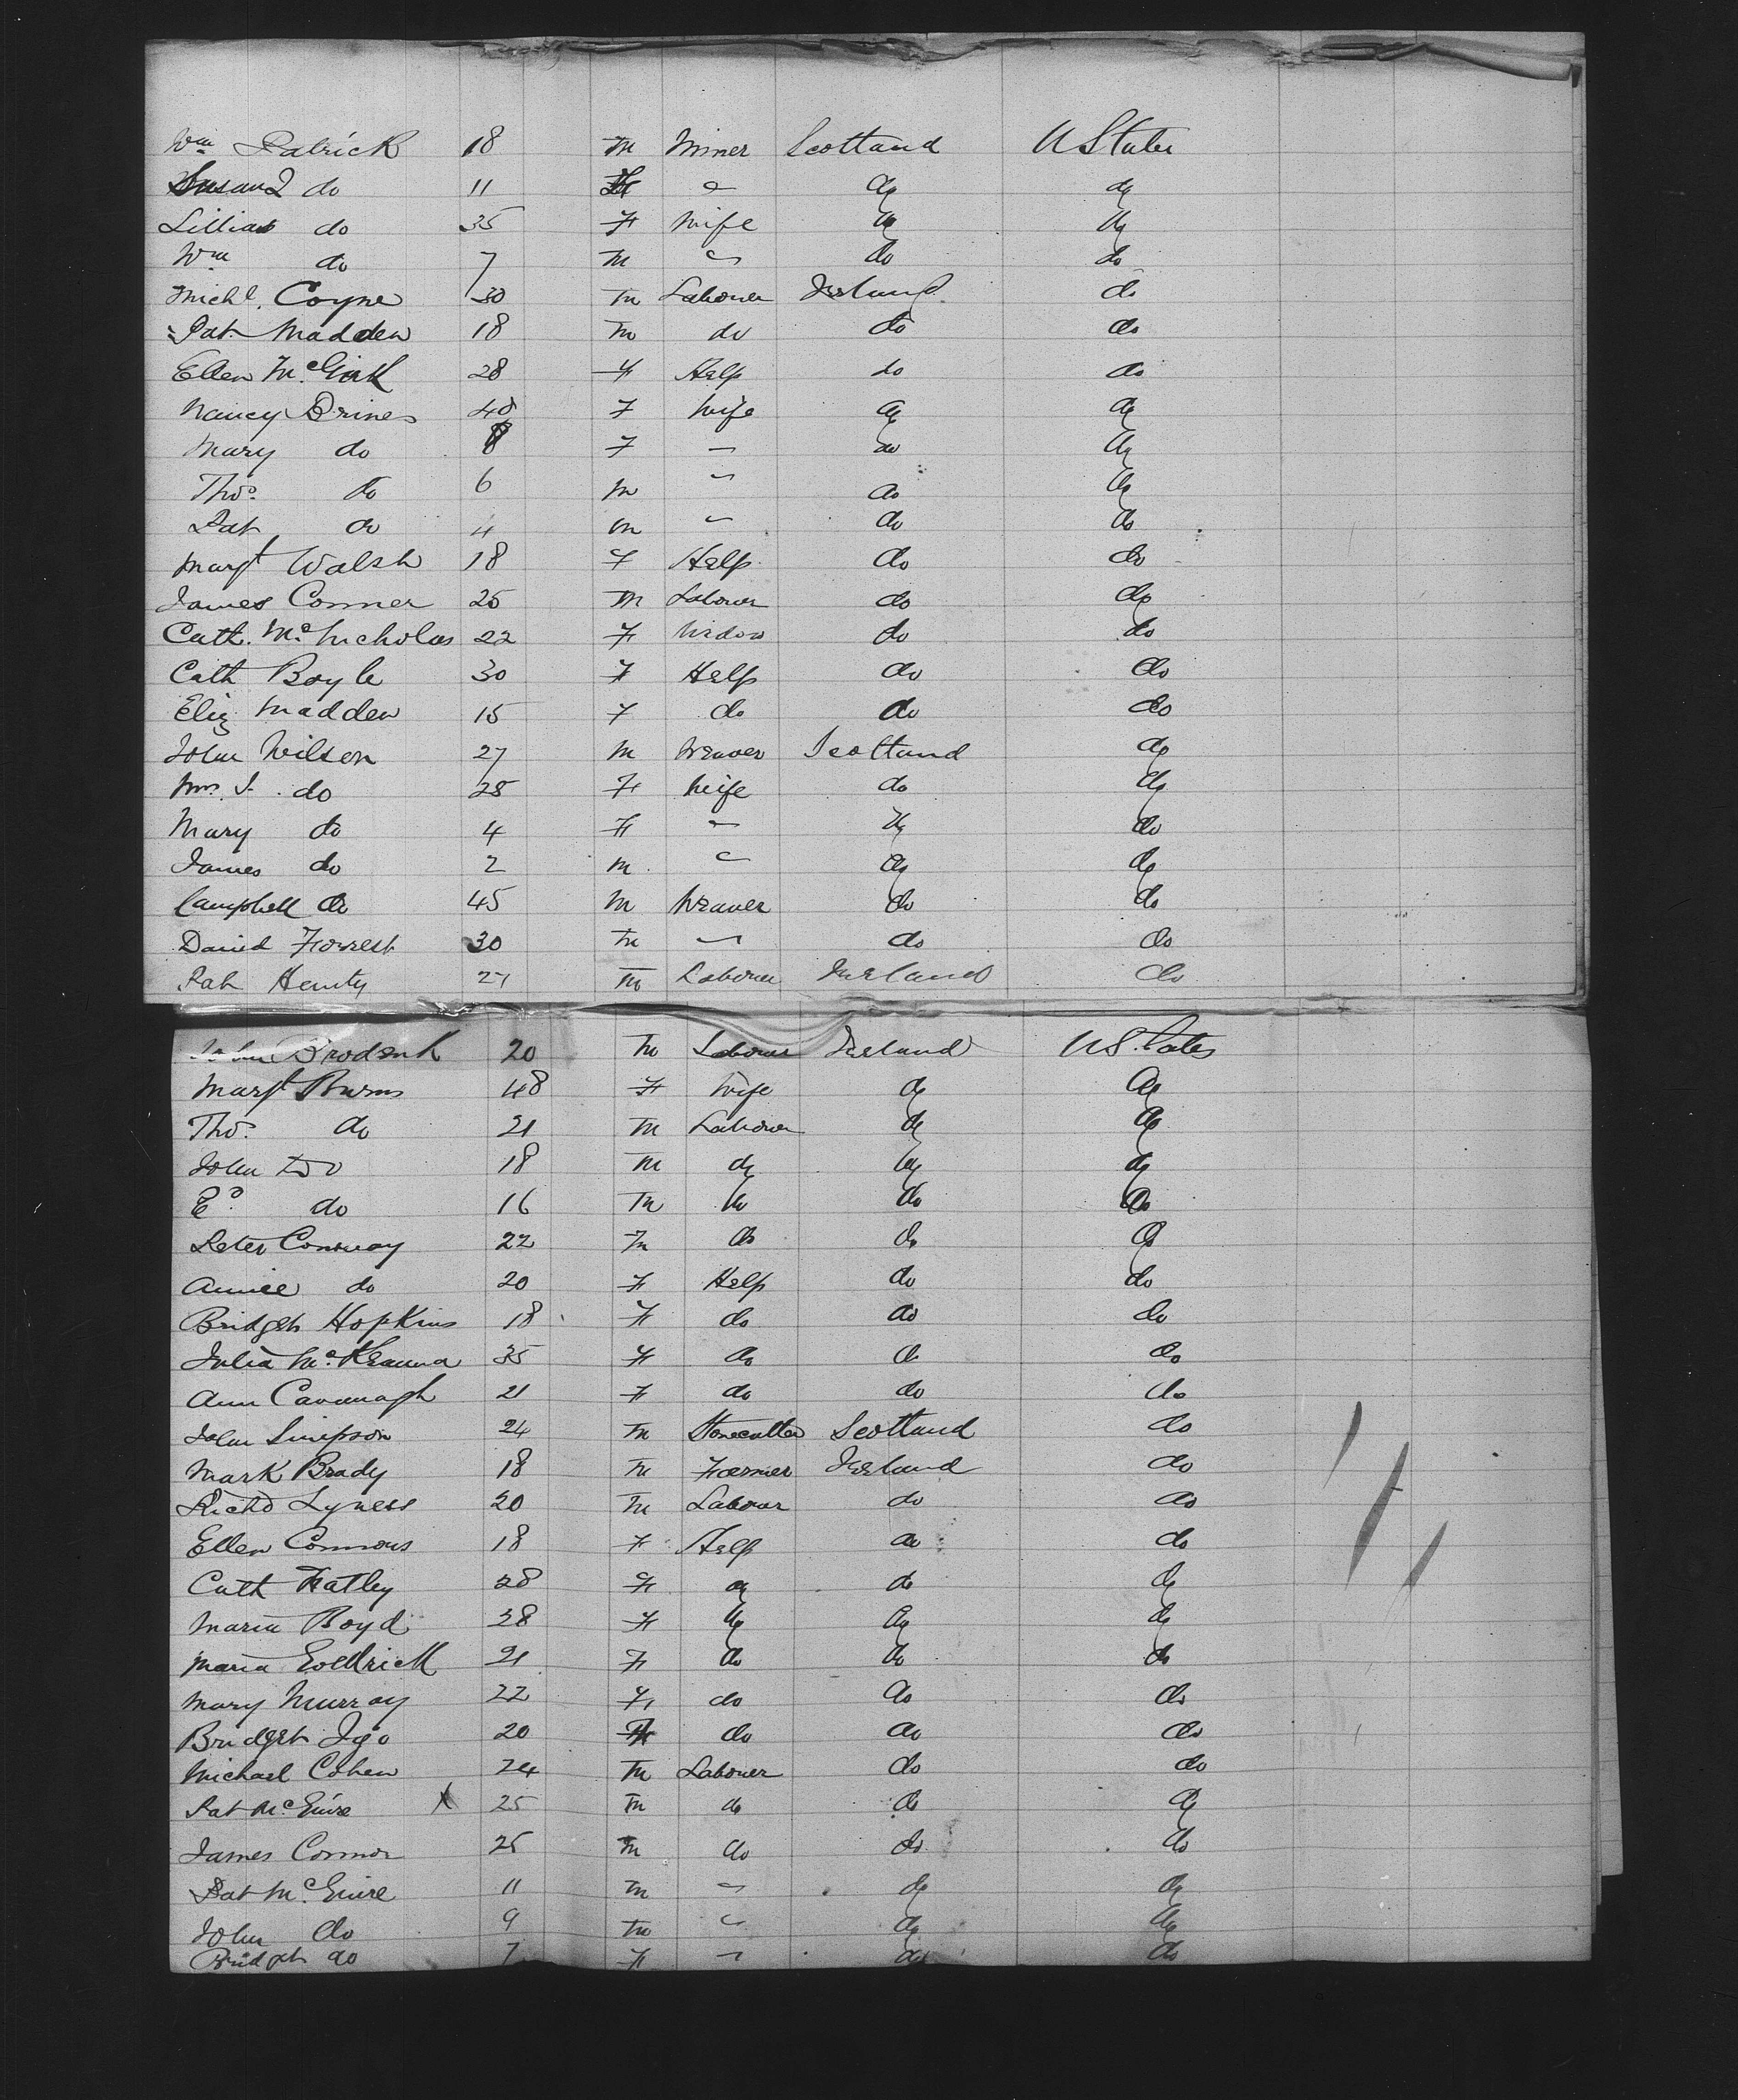 Wm Patrick 18 M Miner Scotland U States
Susan do 11 F " do do
Lillias do 35 F Wife do do
Wm do 7 M " do do
Michl. Coyne 30 M Labourer Ireland do
Pat Madden 18 M do do do
Ellen McGirk 28 F Help do do
Nancy Brines 40 F Wife do do
Mary do 8 F " do do
Thos. do 6 M " do do
Pat do 4 M " do do
Margt Walsh 18 F Help do do
James Conner 25 M Labourer do do
Cath. McNicholas 22 F Widow do do
Cath Boyle 30 F Help do do
Eliz Madden 15 F do do do
John Wilson 27 M Weaver Scotland do
Mrs. J. do 28 F Wife do do
Mary do 4 F " do do
James do 2 M " do do
Campbell do 45 M Weaver do do
David Forrest 30 M " do do
Pat Henty 27 M Labourer Ireland do
John 20 M Labourer Ireland U States
Margt Burns 48 F Wife do do
Thos. do 21 M Labourer do do
John do 18 M do do do
Ed do 16 M do do do
Peter Conway 22 M do do do
Annie do 20 F Help do do
Bridget Hopkins 18 F do do do
Julia McKeanna 35 F do do do
Ann Cavanagh 21 F do do do
John Simpson 24 M Stonecutter Scotland do
Mark Brady 18 M Farmer Ireland do
Richd Lyness 20 M Labourer do do
Ellen Connors 18 F Help do do
Cath Hatley 28 F do do do
Maria Boyd 28 F do do do
Maria Goldrick 21 F do do do
Mary Murray 22 F do do do
Bridget Igo 20 F do do do
Michael Cohen 24 M Labourer do do
Pat McGuire X 25 M do do do
James Connor 25 M do do do
Pat McGuire 11 M " do do
John do 9 M " do do
Bridget do 7 F " do do